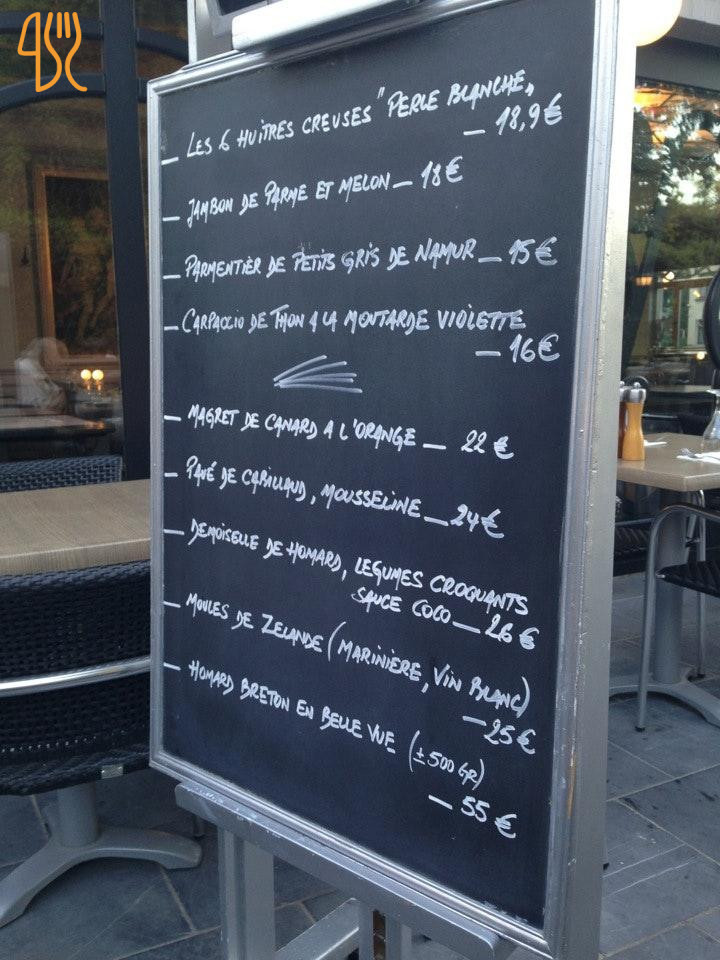 _ LES 6 HUÎTRES CREUSES "PERLE BLANCHE,,
_ 18,9€
_ JAMBON DE PARME ET MELON _ 18€
_ PARMENTIER DE PETITS GRIS DE NAMUR _ 15€
_ CARPACCIO DE THON A LA MOUTARDE VIOLETTE
_ 16€
_ MAGRET DE CANARD A L'ORANGE _ 22€
_ PAVÉ DE CABILLAUD, MOUSSELINE _ 24€
_ DEMOISELLE DE HOMARD, LEGUMES CROQUANTS
SAUCE COCO _ 26€
_ MOULES DE ZELANDE (MARINIÈRE, VIN BLANC)
_ 25€
_ HOMARD BRETON EN BELLE VUE (±500 GR)
_ 55€